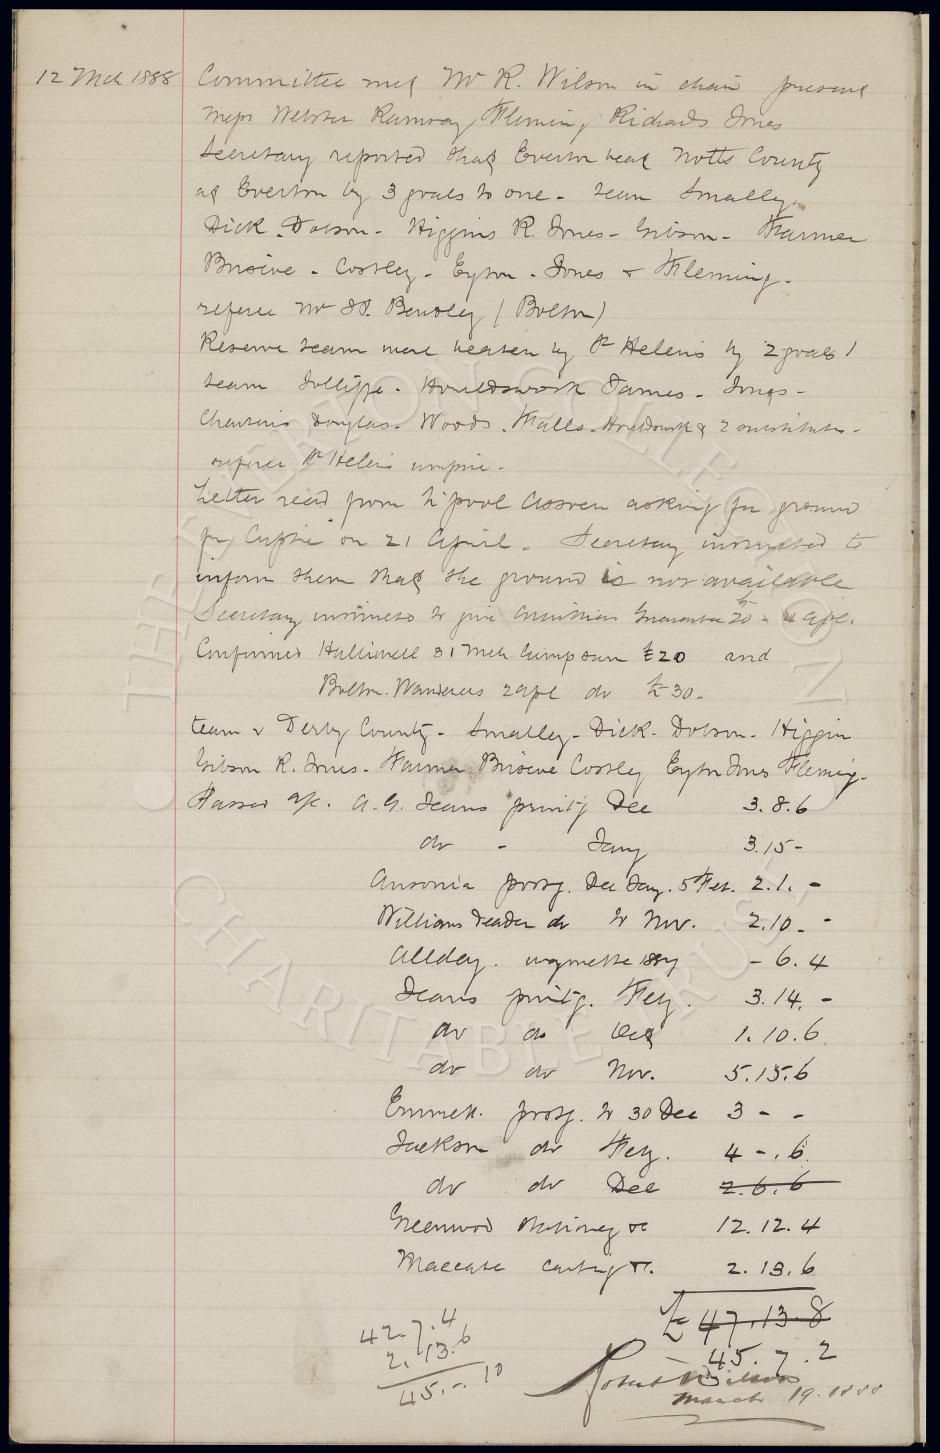 12 Mch 1888 Committee met Mr R. Wilson in chair present
Messrs Webster Ramsay Fleming Richards Jones
Secretary reported that Everton beat Notts County
at Everton by 3 goals to one - team Smalley.
Dick - Dobson - Higgins R. Jones - Gibson - Farmer
Briscoe - Costley - Eyton - Jones & Fleming -
referee Mr Bentley (Bolton)
Reserve team were beaten by St Helens by 2 goals 1
team Jolliffe - Houldsworth James - Jones -
Douglas - Woods - Falls - Houldsworth & 2 substitutes -
referee St Helens umpire -
Letter read from L'pool Assocn asking for ground
for Cuptie on 21 April - Secretary instructed to
inform them that the ground is not available
Secretary instructed to give Guarantee £20 - 4 Apl.
Confirmed Halliwell 31 Mch lump sum £20 and
Bolton Wanderers 2 apl do £30 -
team v Derby County - Smalley - Dick - Dobson - Higgins
Gibson R. Jones - Farmer Briscoe Costley Eyton Jones Fleming -
Passed a/c. A. G. Jeans printg Dec 3.8.6
do - Jany 3.15 -
Ansonia postg. Dec Jany. 5 Feb. 2.1. -
Williams Leader do to Nov. 2.10. -
Allday. wagonette 1887 - 6.4
Jeans printg. Feby. 3.14. -
do do Oct 1.10.6
do do Nov. 5.15.6
Emmett. postg. to 30 Dec 3 - -
Jackson do Feby. 4 - . 6.
do do Dec 2.6.6
Greenwood stationery &c 12.12.4
Maccabe carting &c. 2.13.6
£ 47.13.8
42.7.4
45.7.2
2.13.6
45.-.10
Robert Wilson
March 19. 1888
THE EVERTON COLLECTION
CHARITABLE TRUST